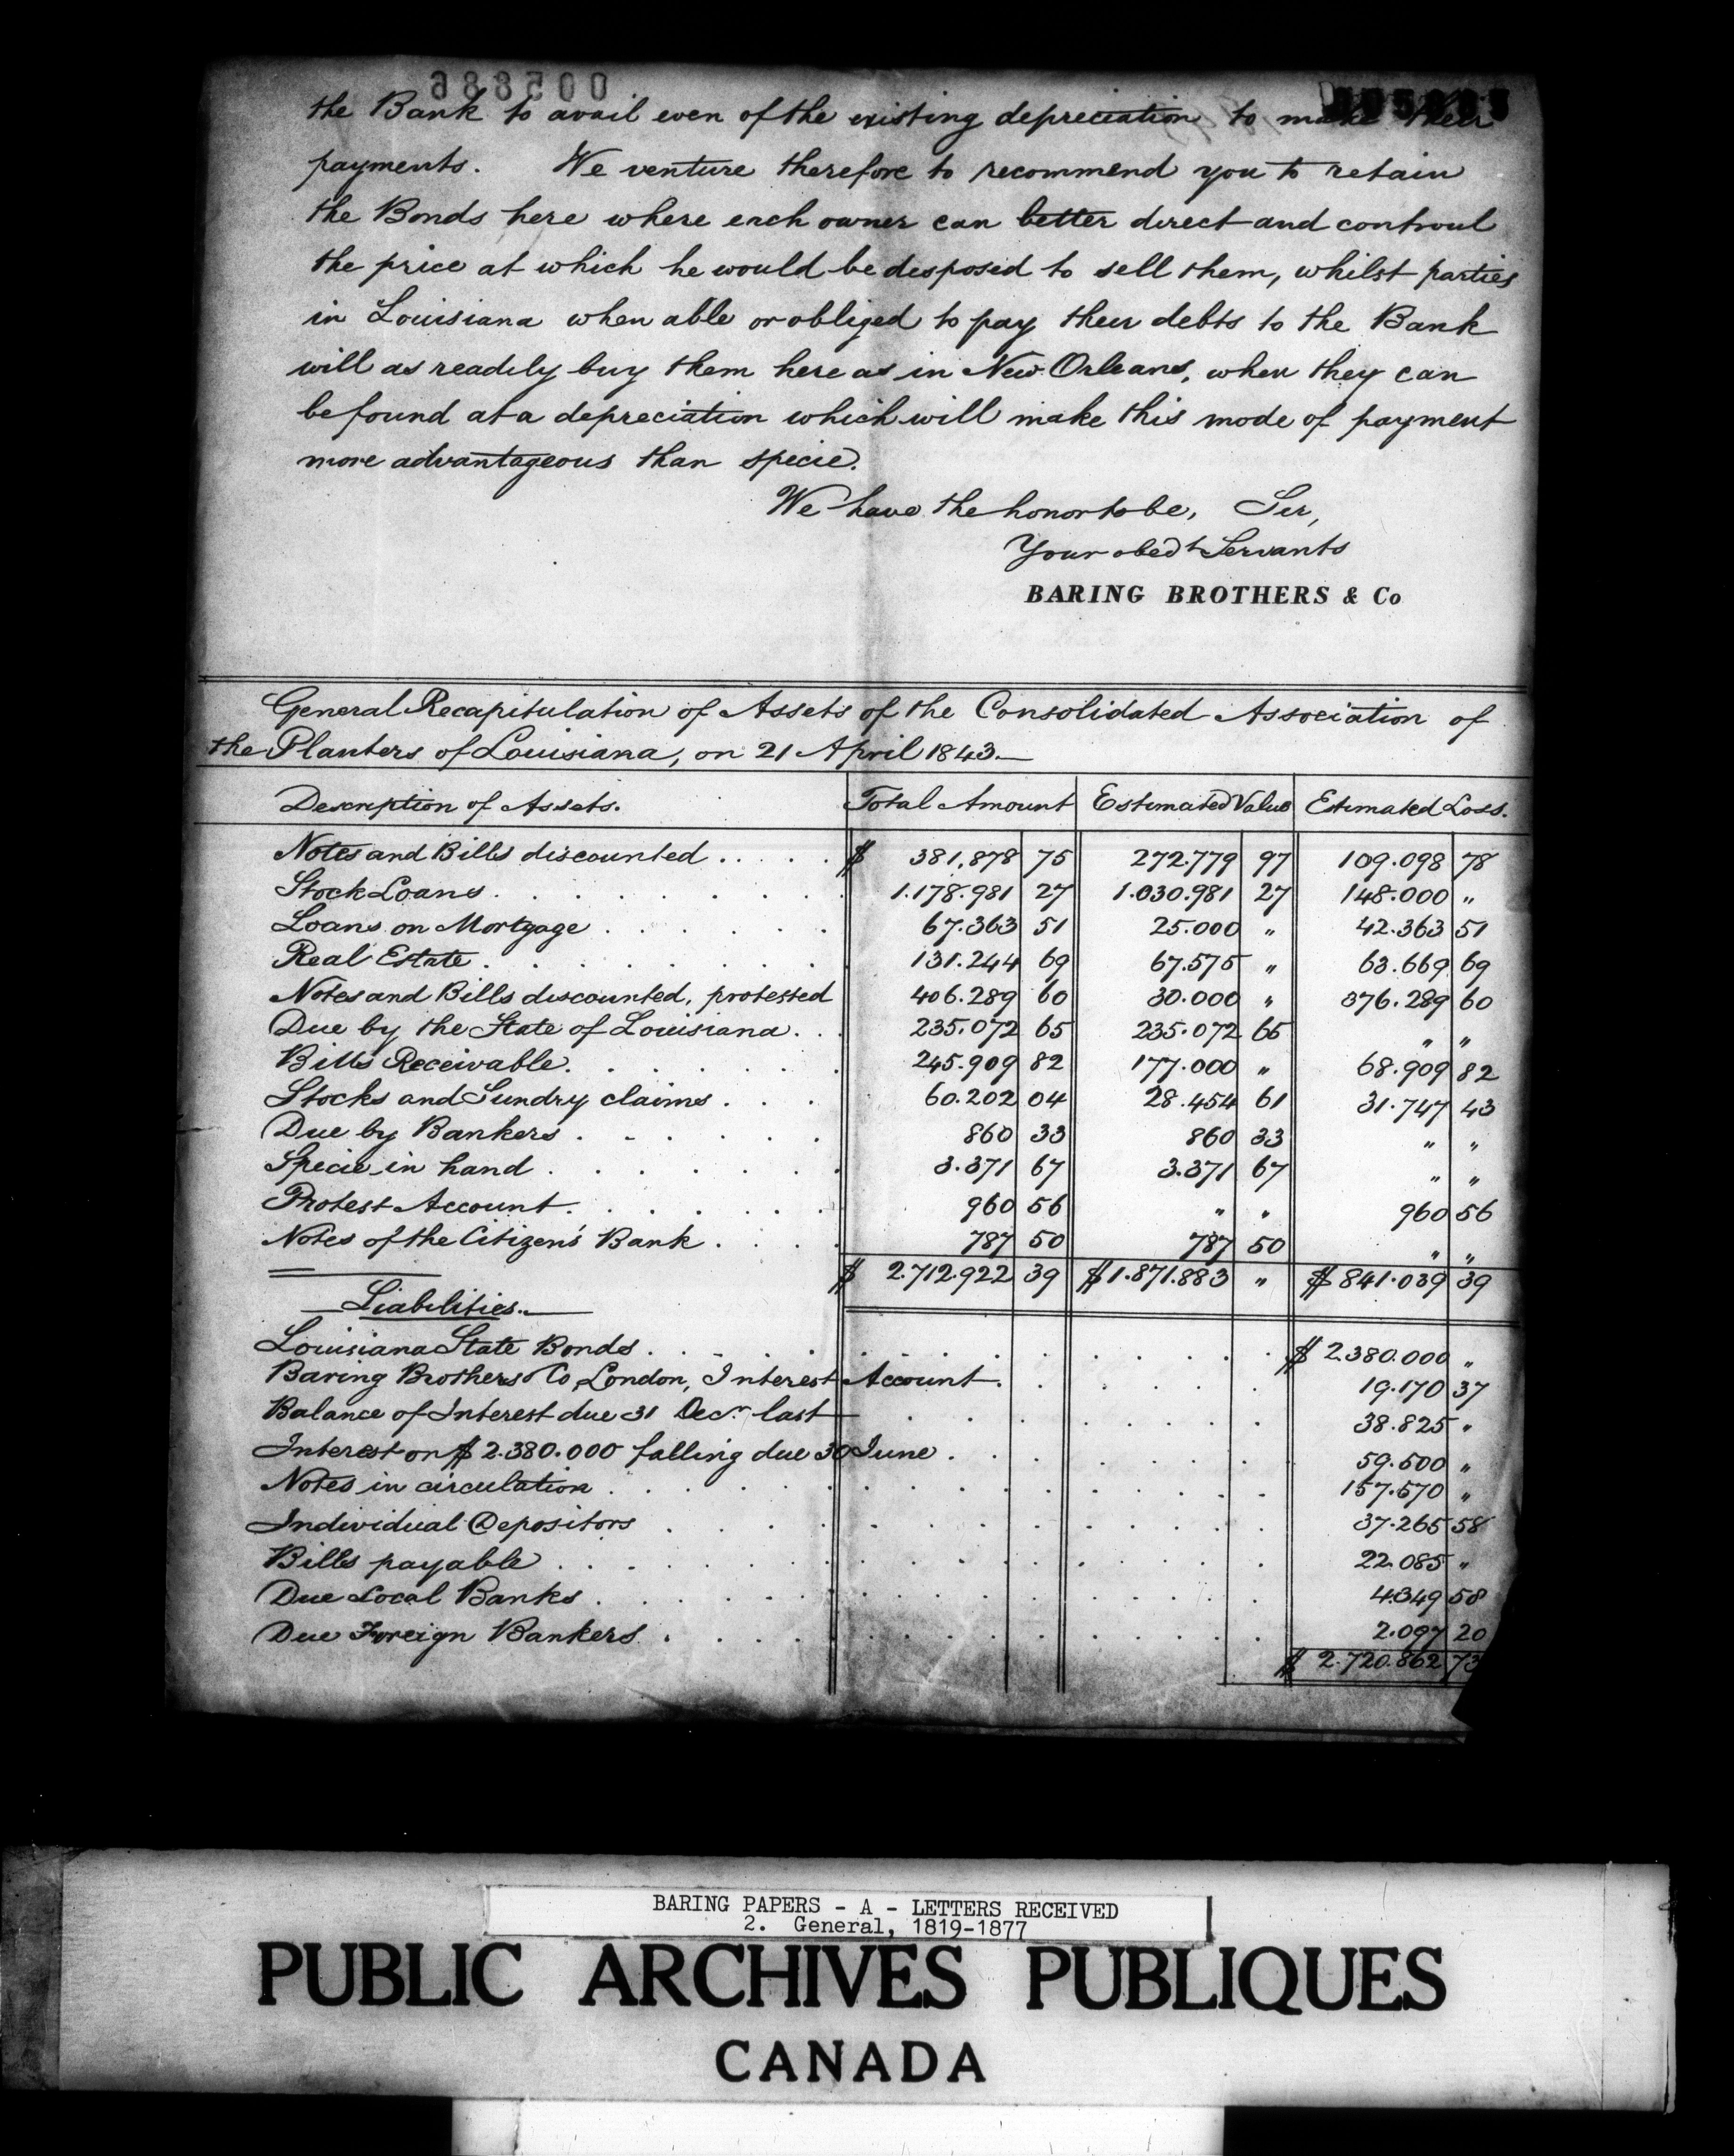 005886
the Bank to avail even of the existing depreciation to make their
payments. We venture therefore to recommend you to retain
the Bonds here where each owner can better direct and controul
the price at which he would be disposed to sell them, whilst parties
in Louisiana when able or obliged to pay their debts to the Bank
will as readily buy them here as in New Orleans, when they can
be found at a depreciation which will make this mode of payment
more advantageous than specie.
We have the honor to be, Sir,
Your obedt Servants
BARING BROTHERS & Co
General Recapitulation of Assets of the Consolidated Association of
the Planters of Louisiana, on 21 April 1843.—
Description of Assets. Total Amount Estimated Value Estimated Loss.
Notes and Bills discounted . . . . . $ 381,878 75 272.779 97 109.098 78
Stock Loans . . . . . . . . 1.178.981 27 1.030.981 27 148.000 "
Loans on Mortgage . . . . . . 67.363 51 25.000 " 42.363 51
Real Estate . . . . . . . . 131.244 69 67.575 " 63.669 69
Notes and Bills discounted, protested 406.289 60 30.000 " 376.289 60
Due by the State of Louisiana . . . 235.072 65 235.072 65 " "
Bills Receivable . . . . . . . 245.909 82 177.000 " 68.909 82
Stocks and Sundry claims . . . 60.202 04 28.454 61 31.747 43
Due by Bankers . . . . . . 860 33 860 33 " "
Specie in hand . . . . . . . 3.371 67 3.371 67 " "
Protest Account . . . . . . . 960 56 " " 960 56
Notes of the Citizen's Bank . . . . 787 50 787 50 " "
$ 2.712.922 39 $ 1.871.883 " $ 841.039 39
Liabilities.
Louisiana State Bonds . . . . . . . . $ 2.380.000 "
Baring Brothers & Co, London, Interest Account . . . . . . 19.170 37
Balance of Interest due 31 Decr last . . . . . . 38.825 "
Interest on $ 2.380.000 falling due 30 June . . . . . . 59.500 "
Notes in circulation . . . . . . . . 157.570 "
Individual Depositors . . . . . . . . 37.265 58
Bills payable . . . . . . . . 22.085 "
Due Local Banks . . . . . . . . 4.349 58
Due Foreign Bankers . . . . . . . . 2.097 20
$ 2.720.862 73
BARING PAPERS - A - LETTERS RECEIVED
2. General, 1819-1877
PUBLIC ARCHIVES PUBLIQUES
CANADA